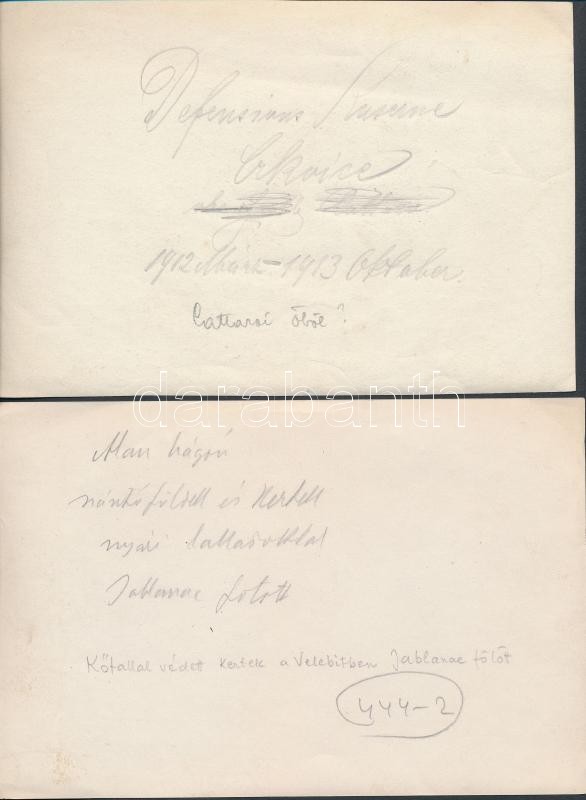 Defensions Kaserne
Crkvice
1912 März – 1913 Oktober.
Cattaroi öböl?
darabanth
Alan hágón
szántóföldek és kertek
nyári lakásokkal
Jablanac fölött
Kőfallal védett kertek a Velebitben Jablanac fölött
444-2